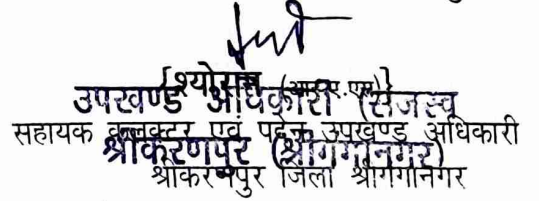 उपखण्ड अधिकारी (राजस्व
सहायक कलक्टर एवं पदेन उपखण्ड अधिकारी
श्रीकरणपुर (श्रीगंगानगर)
श्रीकरणपुर जिला श्रीगंगानगर